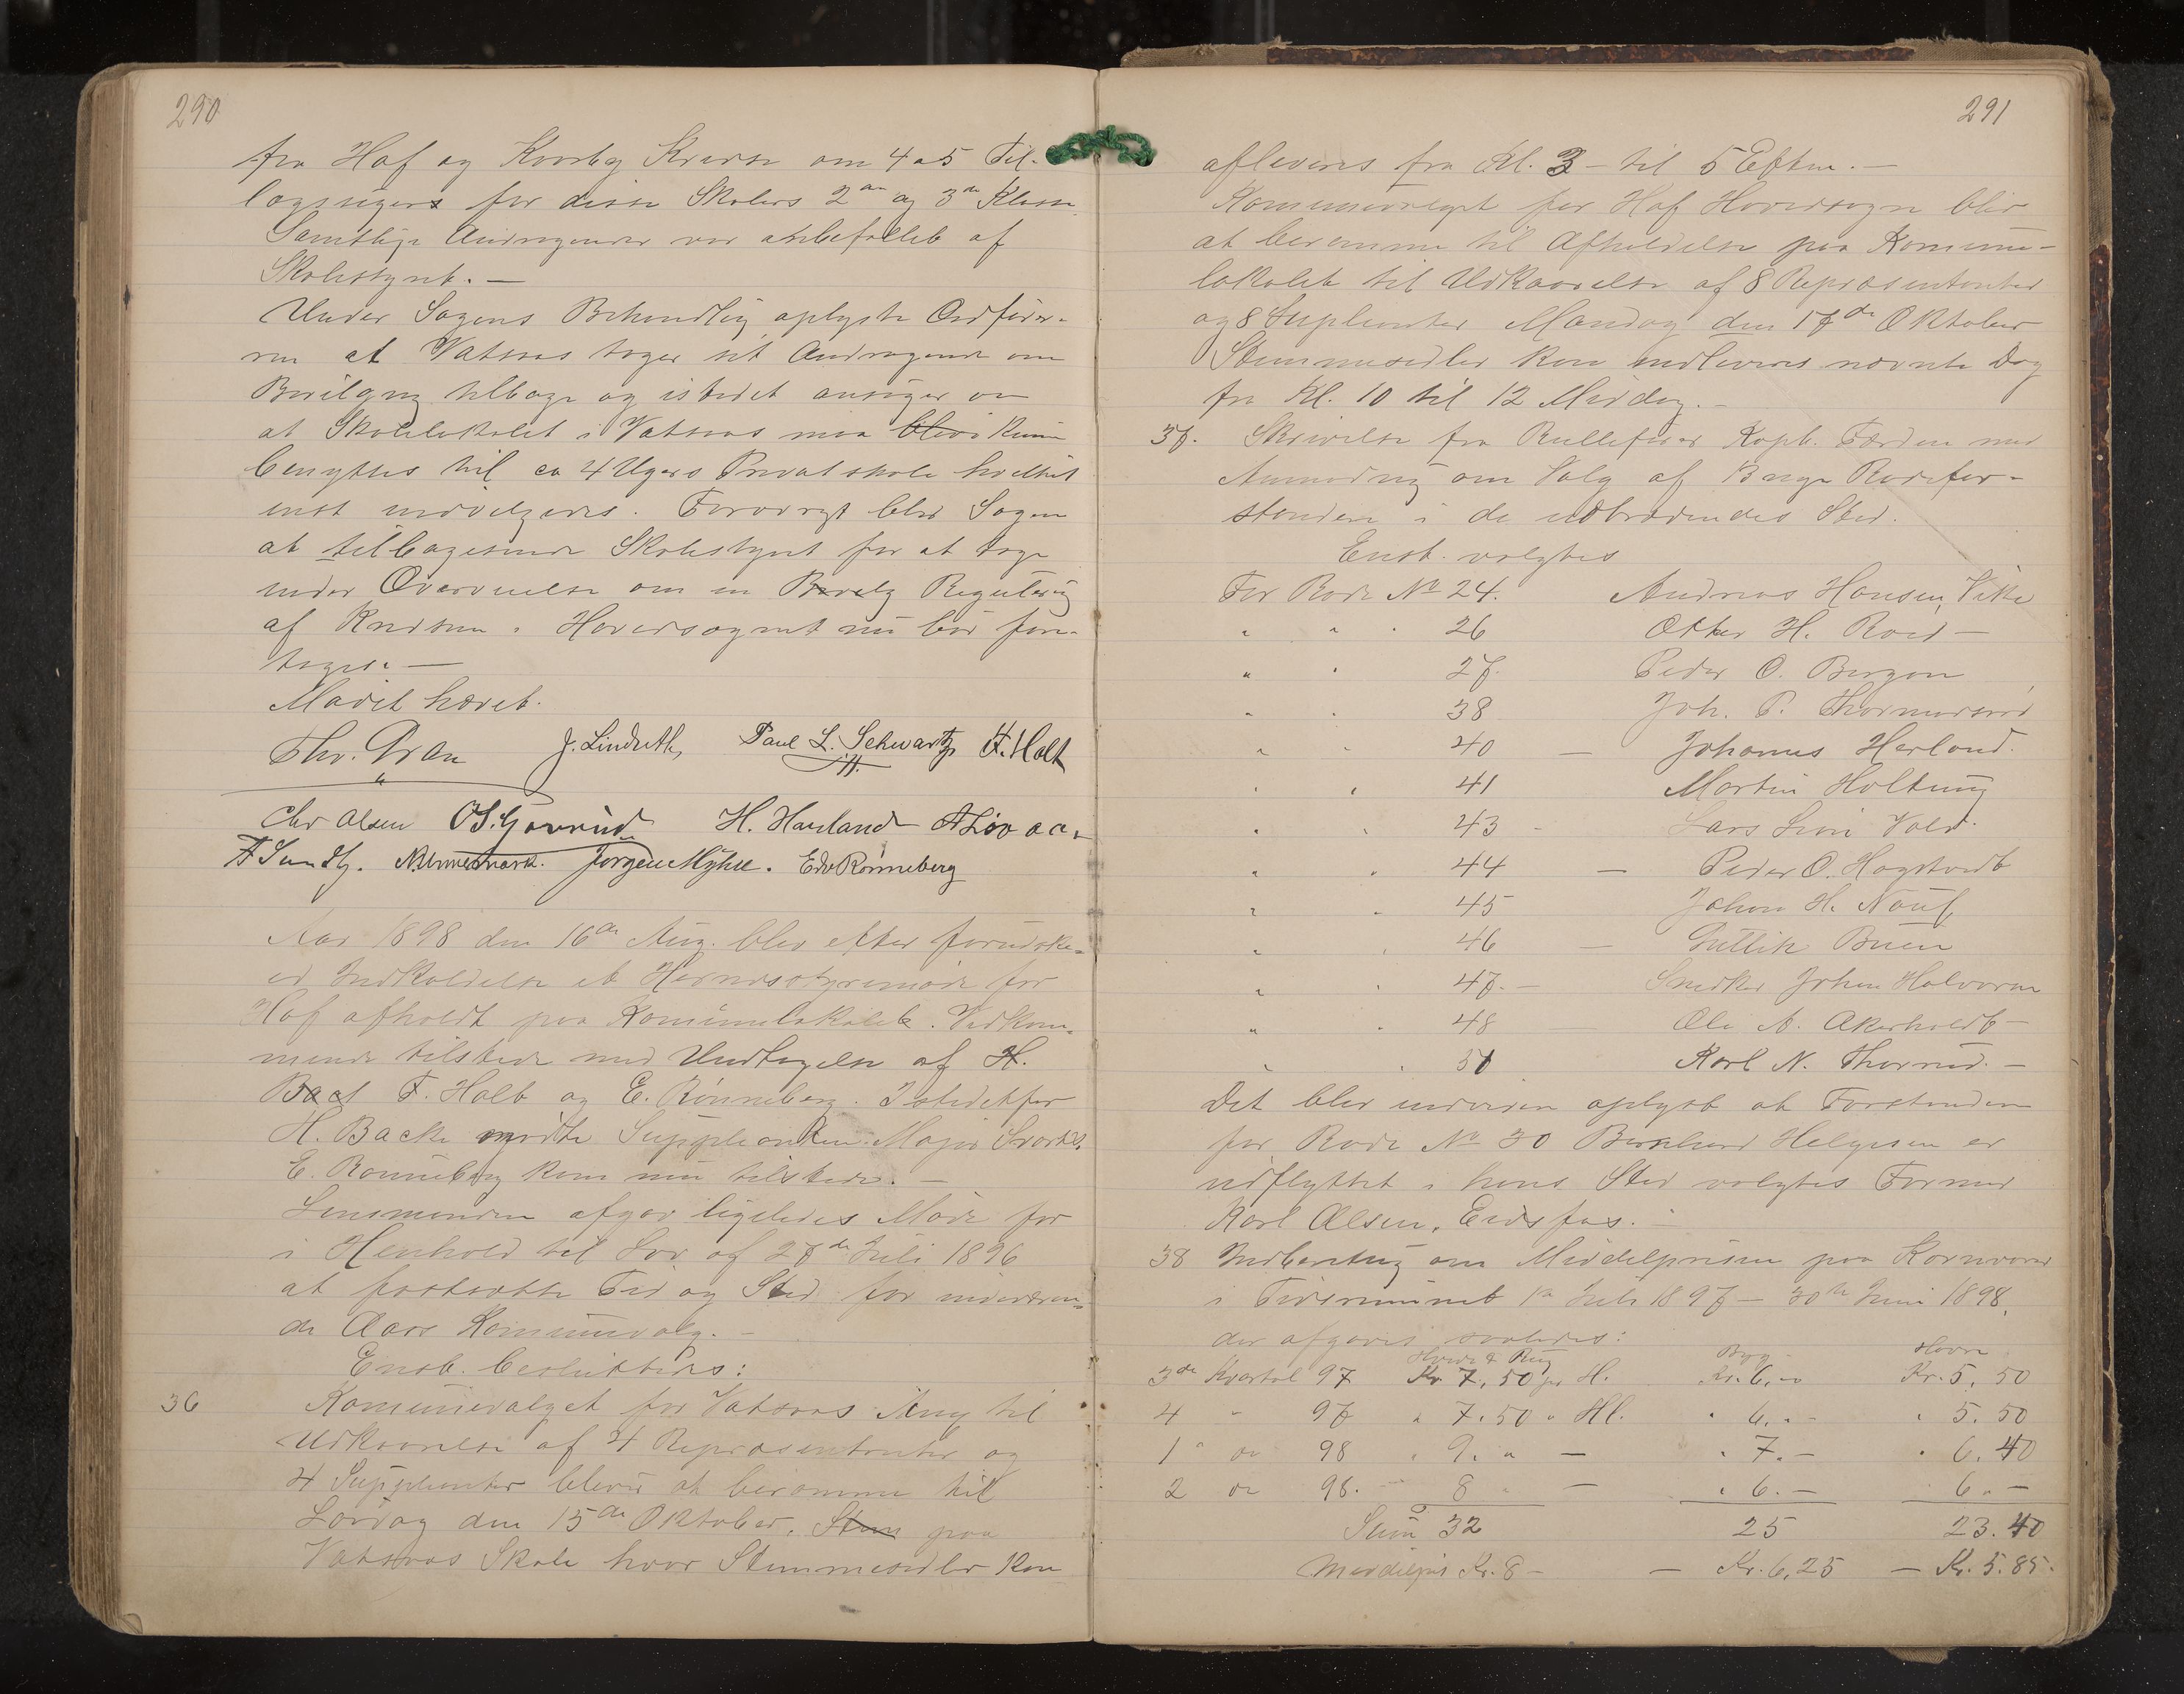 290
fra Hof og Kvorby Kredse om 4 a 5 Til-
lægsuger for disse Skolers 2den og 3die Klasse
Samtlige Andragender var anbefallet af
Skolestyret. —
Under Sagens Behandling oplyste Ordføre-
ren at Vatsaas tager sit Andragende om
Bevilgng tilbage og istedet ansøger om
at Skolelokalet i Vatsaas maa blive kunne
benyttes til ca 4 Ugers Privatskole hvilket
enst indvilgedes. Forøvrigt blev Sagen
at tilbagesende Skolestyret for at tage
under Overveielse om en Bevelg Regulering
af Kredsene i Hovedsognet nu bør fore-
tages. —
Mødet hævet.
Thv. Gran J. Lindseth, Paul L. Schwartz F. Holt
Chr Olsen O S. Gavrud H. Harland A Løvaas
F Sundby. N. Ummesmark. Jørgen Myhre. Edv Rønneberg
Aar 1898 den 16de Aug. blev efter forudske-
ed Indkaldelse et Herredsstyremøde for
Hof afholdt paa Komunelokalet. Vedkom-
mende tilstede med Undtagelse af H.
Back F. Holt og E. Rönneberg. Istedetfor
H. Backe mødte Suppleanten Major Svartz.
E. Ronneberg kom nu tilstede. —
Lensmanden afgav ligeledes Møde for
i Henhold til Lov af 27de Juli 1896
at fastsætte Tid og Sted for indeværen-
de Aars Komunevalg. —
Enst. besluttedes:
36 Komunevalget for Vatsaas Anx til
Udkaarelse af 4 Repræsentanter og
4 Suppleanter blever at beramme til
Lørdag den 15de Oktober. Stem paa
Vatsaas Skole hvor Stemmesedler kan
291
afleveres fra Kl. 3 – til 5 Efterm. —
Komunevalget for Hof Hovedsogn blir
at beramme til Afholdelse paa Komune-
lokalet til Udkaarelse af 8 Repræsentanter
og 8 Supleanter Mandag den 17de Oktober
Stemmesedler kan indleveres nævnte Dag
fra Kl. 10 til 12 Middag. –
37. Skrivelse fra Rullefører Kapt. Færden med
Anmodning om Valg af Rodefor-
standere i de udtrædendes Sted.
Enst. valgtes
For Rode No 24. Andreas Hansen, Vike
" " " 26 Otter H. Roed —
" " 27. Peder O. Bergan
" " 38 Joh. P. Thormodsrød
" " 40 — Johannes Herland.
" " 41 Martin Holtung
" " 43 - Lars Svin Vold.
" " 44 — Peder O. Hagstvedt
" " 45 Johan H. Nauf,
" " 46 — Gullik Buen
" " 47. — Snedker Johan Halvorsen
" " 48 — Ole A. Akerholdt —
" " 51 Karl N. Thorrud. —
Det blev endvidere oplyst at Forstanderen
for Rode No 30 Bernhard Helgesen er
udflyttet i hans Sted valgtes Formed
Karl Olsen, Eidsfos. —
38 Indberetng om Middelprisen paa Kornvarer
i Tidsrummet 1ste Juli 1897 – 30te Juni 1898.
der afgaves saaledes:
Hvede & Rug Byg Havre
3de Kvartal 97 Kr. 7,50 pr H. Kr. 6,- Kr. 5,50
4 " 97 " 7.50 " Hl. " 6.- " 5.50
1 " do 98 " 9. " — " 7.- " 6.40
2 do 98. – 8 " — " 6.— 6 " —
Sum 32 25 23.40
Middelpris Kr. 8 – — Kr. 6,25 — Kr. 5.85.